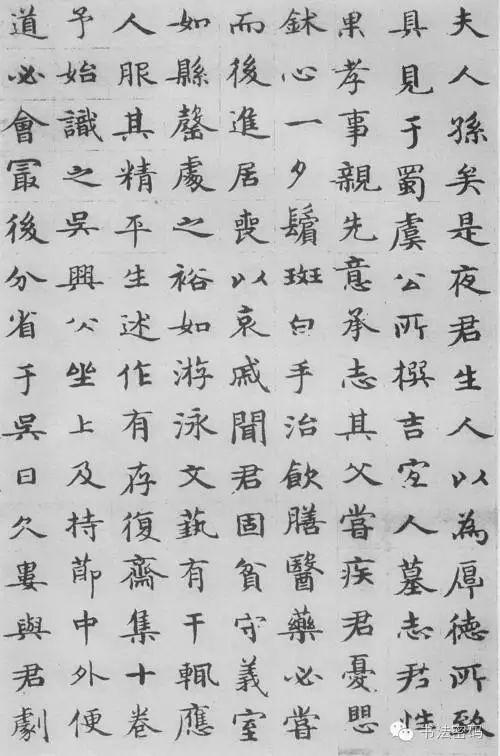 夫人孫矣是夜君生人以為厚德所致
具見于蜀虞公所撰吉宜人墓志君性
果孝事親先意承志其父嘗疾君憂愳
鉥心一夕鬚斑白手治飲膳醫藥必嘗
而後進居喪以哀戚聞君固貧守義室
如縣罄處之裕如游泳文藝有干輒應
人服其精平生述作有存復齋集十卷
予始識之吳興公坐上及持節中外便
道必會冣後分省于吳日久婁與君劇
书法密码